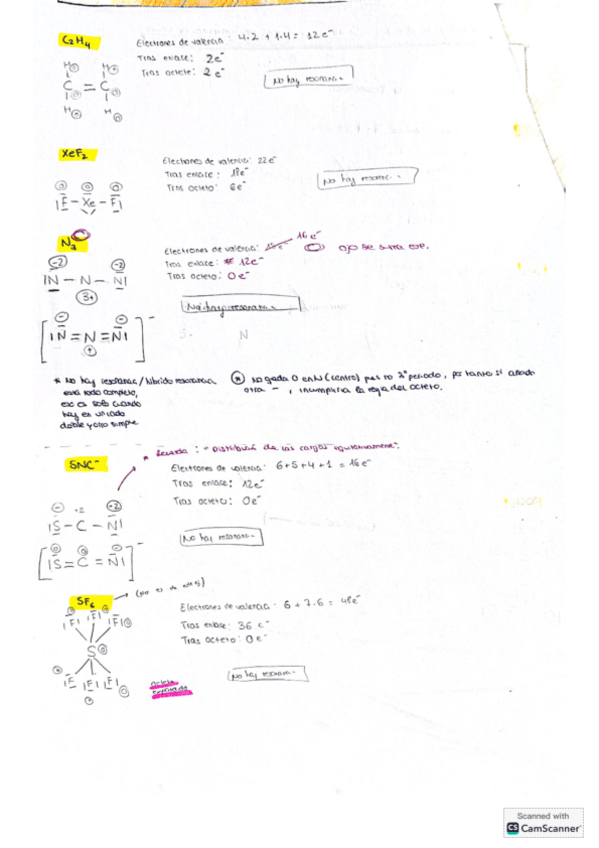 C2H4
Electrones de valencia: 4·2 + 1·4 = 12e⁻
Tras enlace: 2e⁻
Tras octete: 2e⁻
No hay resonancia
H H
C = C
H H
XeF2
Electrones de valencia: 22e⁻
Tras enlace: 18e⁻
Tras octeto: 6e⁻
No hay resonancia
F - Xe - F
N3
Electrones de valencia: 16e⁻
ojo se suma
Tras enlace: 12e⁻
Tras octeto: 0e⁻
-2 -2
N - N - N
3+
No hay resonancia
[N = N = N]⁻
N
* No hay resonancia / híbrido resonancia
está todo completo,
eso es solo cuando
hay enlace
doble y otro simple
* No queda 0 en N (centro) pues no 3º periodo, por tanto si añado
otra -, incumpliría la regla del octeto.
* Recuerda: "Distribución de las cargas equitativamente".
SNC⁻
Electrones de valencia: 6+5+4+1 = 16e⁻
Tras enlace: 12e⁻
Tras octeto: 0e⁻
+2 -2
S - C - N
No hay resonancia
[S = C = N]⁻
SF6
Electrones de valencia: 6 + 7·6 = 48e⁻
Tras enlace: 36e⁻
Tras octeto: 0e⁻
F F F
S
F F F
octeto
expandido
No hay resonancia
Scanned with
CS CamScanner